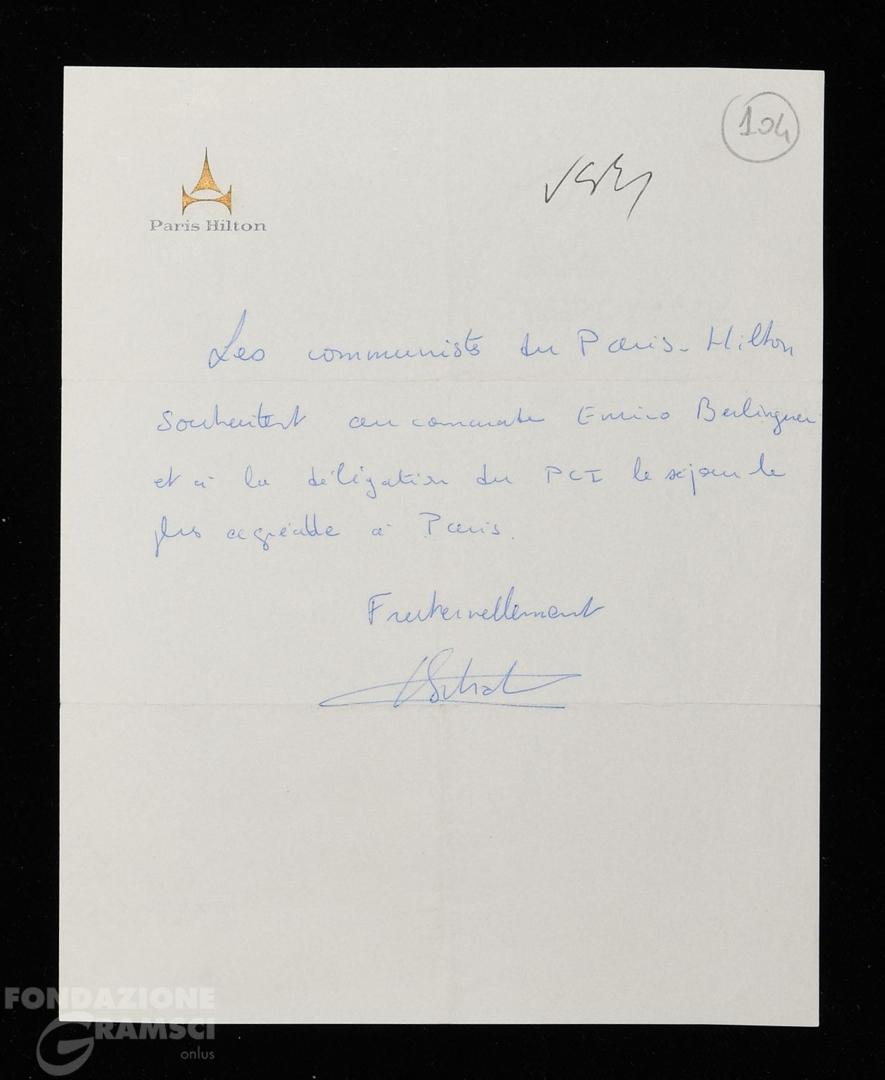 104
Paris Hilton
Les communistes du Paris-Hilton
souhaitent au camarade Enrico Berlinguer
et à la délégation du PCI le séjour le
plus agréable à Paris.
Fraternellement
FONDAZIONE
GRAMSCI
onlus